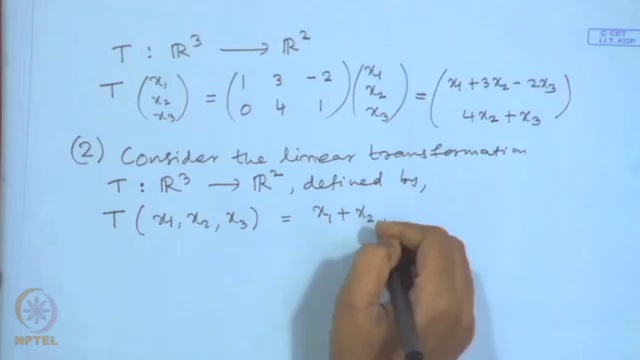 © CET
I.I.T. KGP
T : ℝ³ ⟶ ℝ²
T (x₁ x₂ x₃) = (1 3 -2 0 4 1) (x₁ x₂ x₃) = (x₁ + 3x₂ - 2x₃ 4x₂ + x₃)
(2) Consider the linear transformation
T : ℝ³ ⟶ ℝ², defined by,
T (x₁, x₂, x₃) = x₁ + x₂
NPTEL